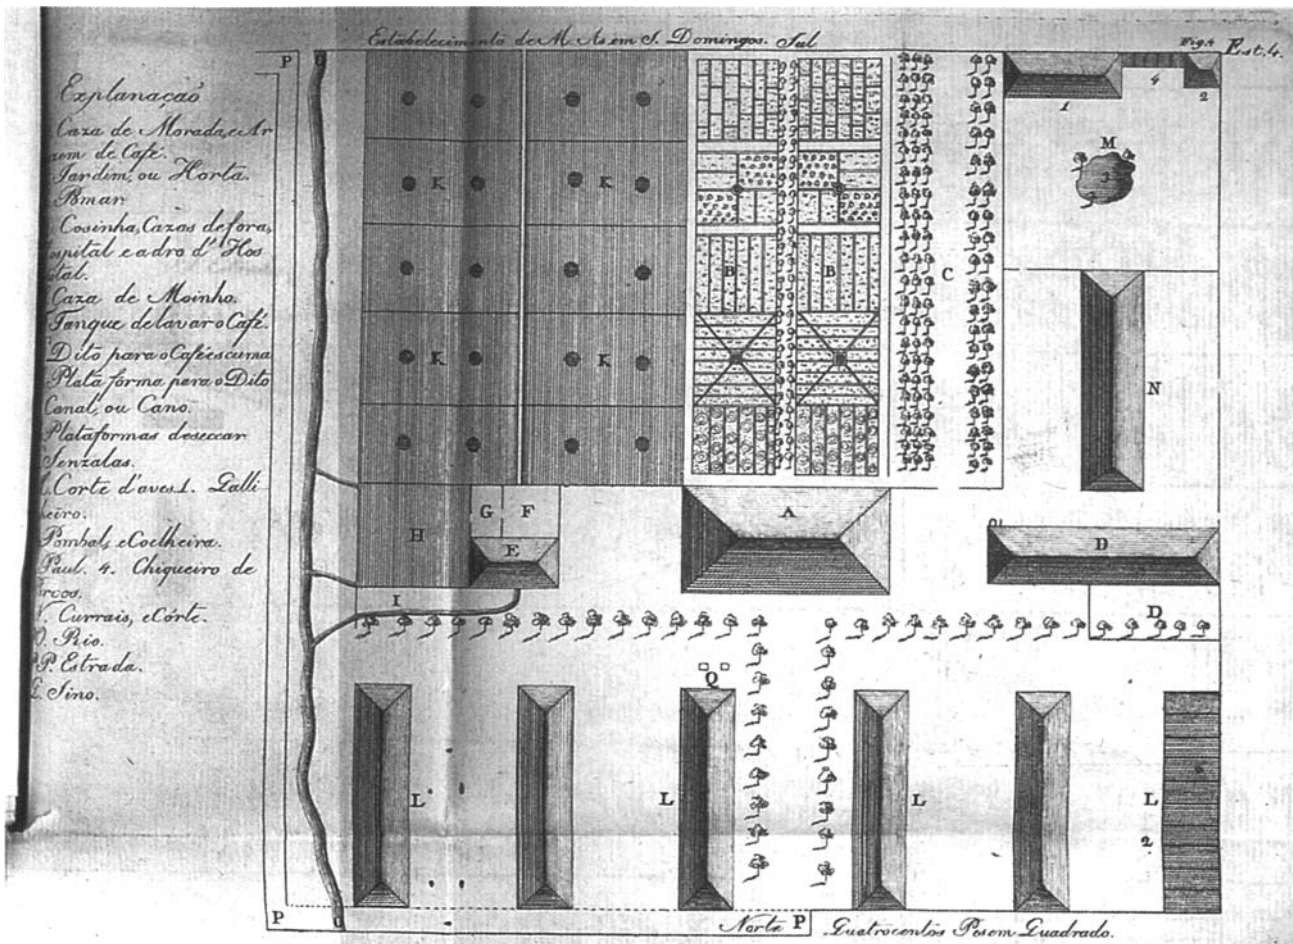 Estabelecimento de M. As em S. Domingos. Sul
Fig. 4
Est. 4.
Explanação
Caza de Morada, e Ar
zem de Café.
Jardim, ou Horta.
Pomar
Cosinha, Cazas de fora,
ospital e adro d' Hos
tal.
Caza de Moinho.
Tanque de lavar o Café.
Dito para o Café escuma
Plata fórma para o Dito
Canal, ou Cano.
Plataformas de seccar
Senzalas.
Corte d'aves 1. Galli
heiro.
Pombal, e Coelheira.
Paul. 4. Chiqueiro de
orcos.
N. Currais, e Córte.
O. Rio.
PP. Estrada.
Sino.
P
O
K K
K K
B B
C
1 4 2
M
3
N
G F
E
H
I
A
D
D
Q
L L L L
2
P
O
Norte P Quatrocentos Pes em Quadrado.